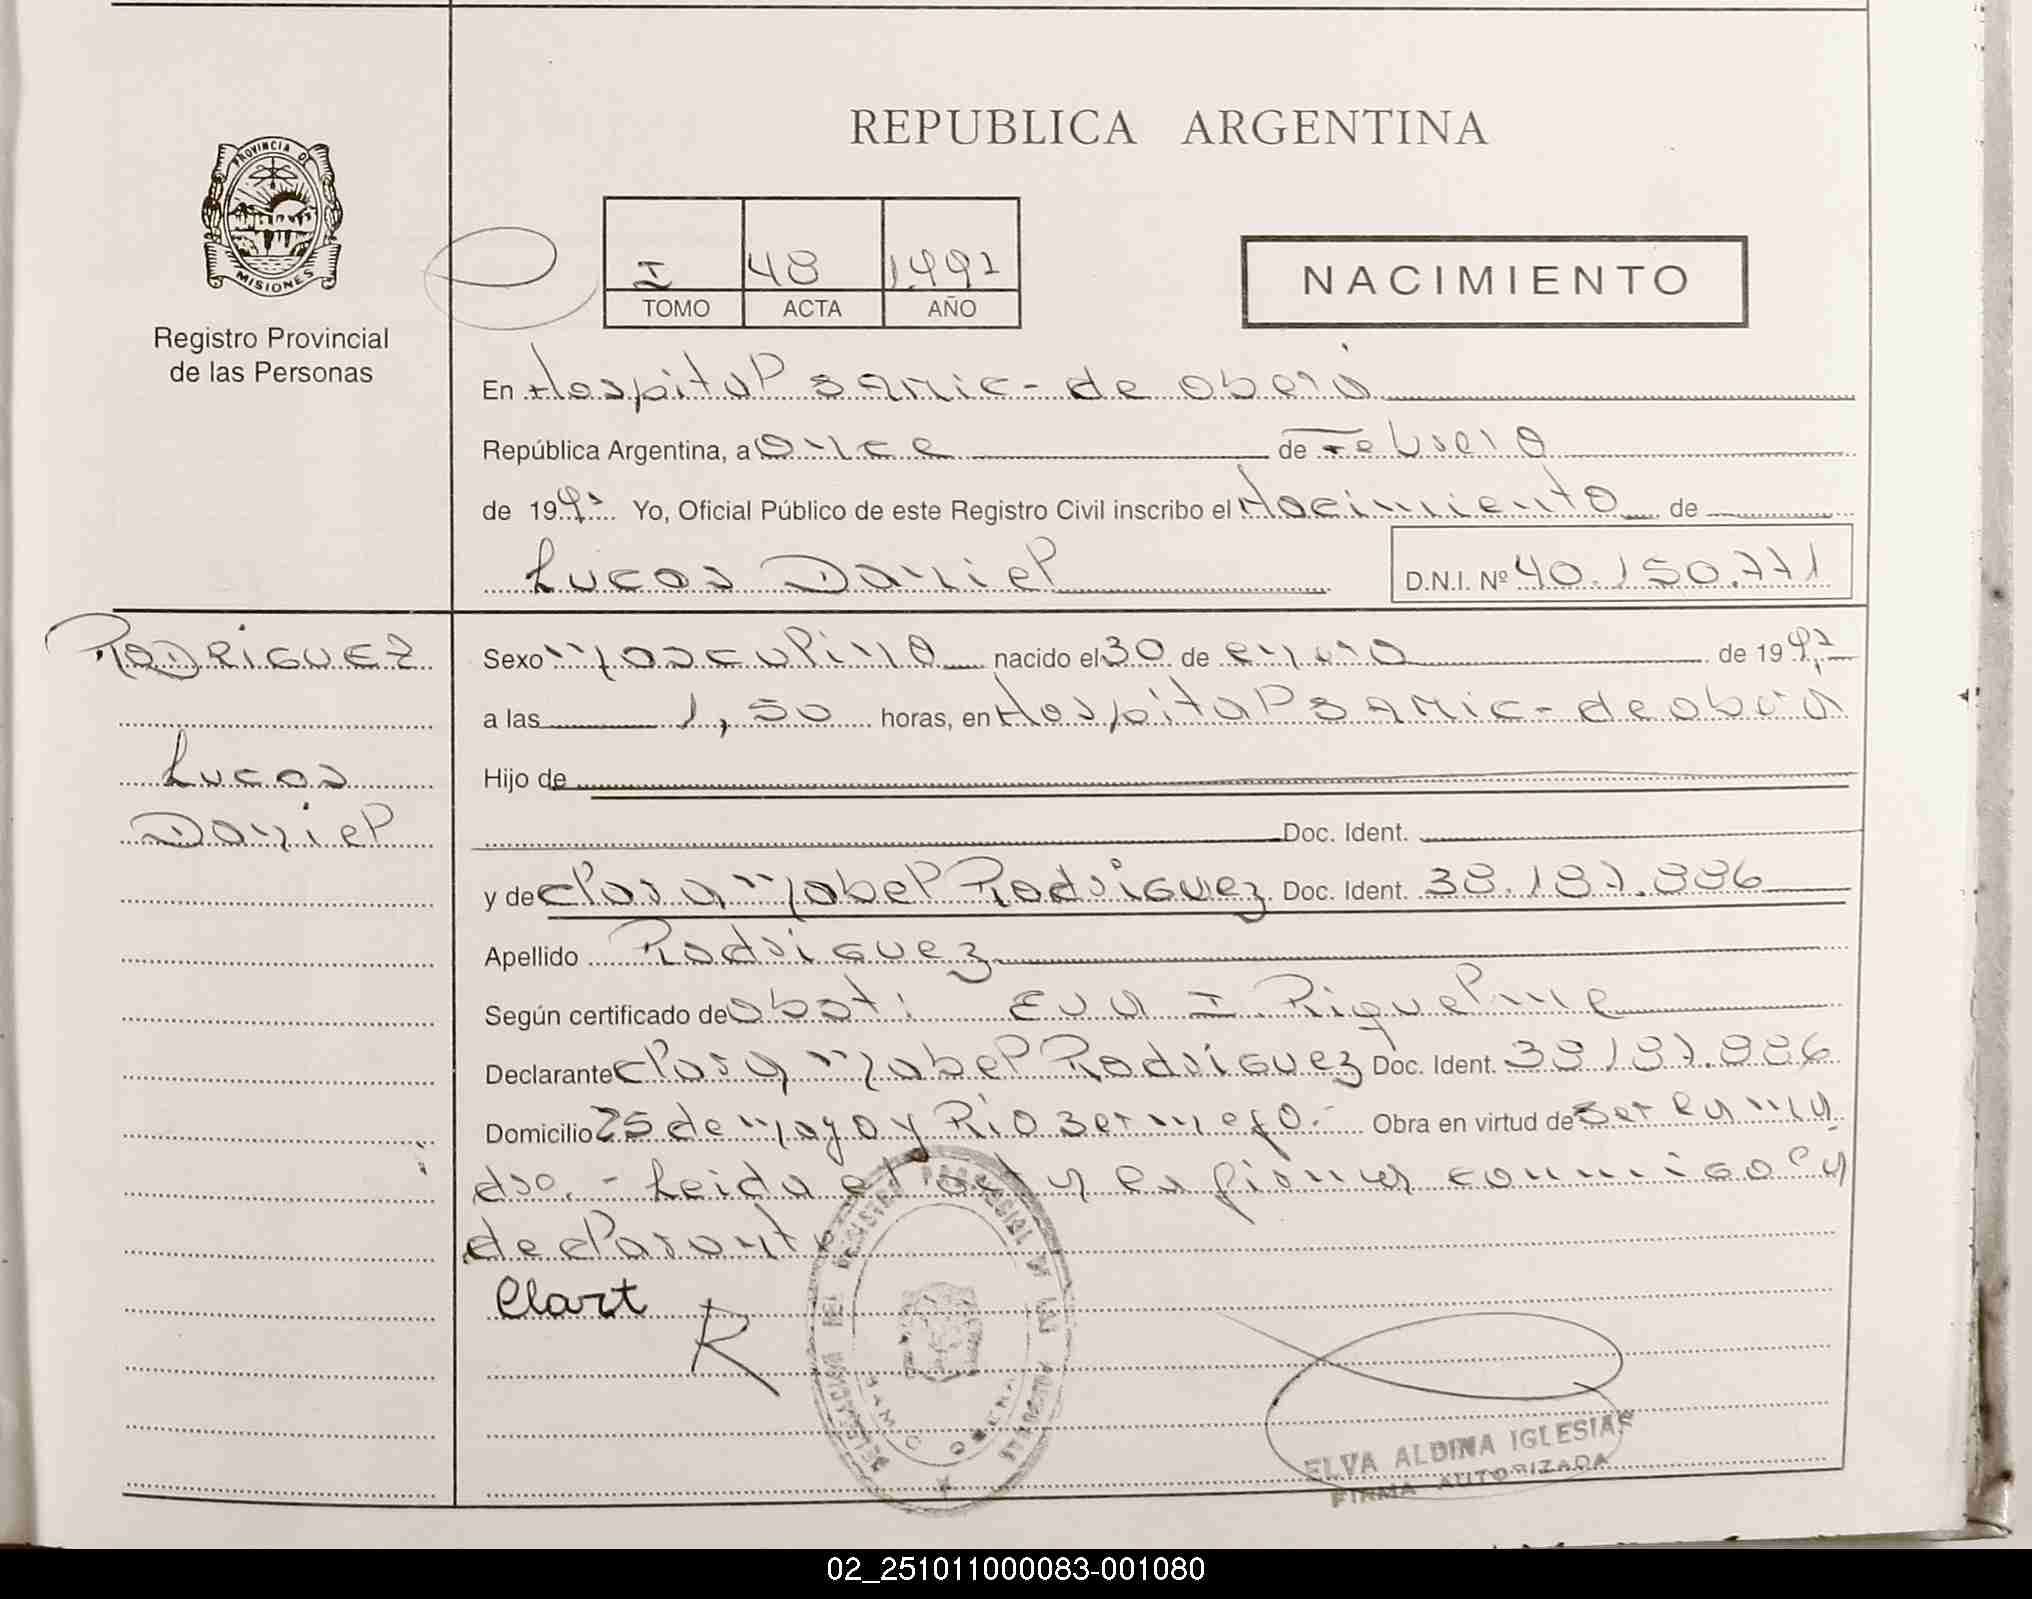 REPUBLICA ARGENTINA
PROVINCIA DE
MISIONES
Registro Provincial
de las Personas
I 48 1.997
TOMO ACTA AÑO
NACIMIENTO
En Hospital SAMIC - de oberá
República Argentina, a once de Febrero
de 1997 Yo, Oficial Público de este Registro Civil inscribo el Nacimiento de
Lucas Daniel
D.N.I. Nº 40.150.771
RODRIGUEZ
Lucas
Daniel
Sexo masculino nacido el 30 de enero de 1997
a las 1,50 horas, en Hospital SAMIC - de oberá
Hijo de
Doc. Ident.
y de Clara Mabel Rodriguez Doc. Ident. 38.187.886
Apellido Rodriguez
Según certificado de obst: Eva I Riquelme
Declarante Clara Mabel Rodriguez Doc. Ident. 38.187.886
Domicilio 25 de mayo y Rio Bermejo.- Obra en virtud de Ser la ma
dre. - Leida el acta la firma conmigo la
declarante
Clart
R
DELEGACION DEL REGISTRO PROVINCIAL DE LAS PERSONAS
SAMIC OBERA
ELVA ALDINA IGLESIAS
FIRMA AUTORIZADA
02_251011000083-001080